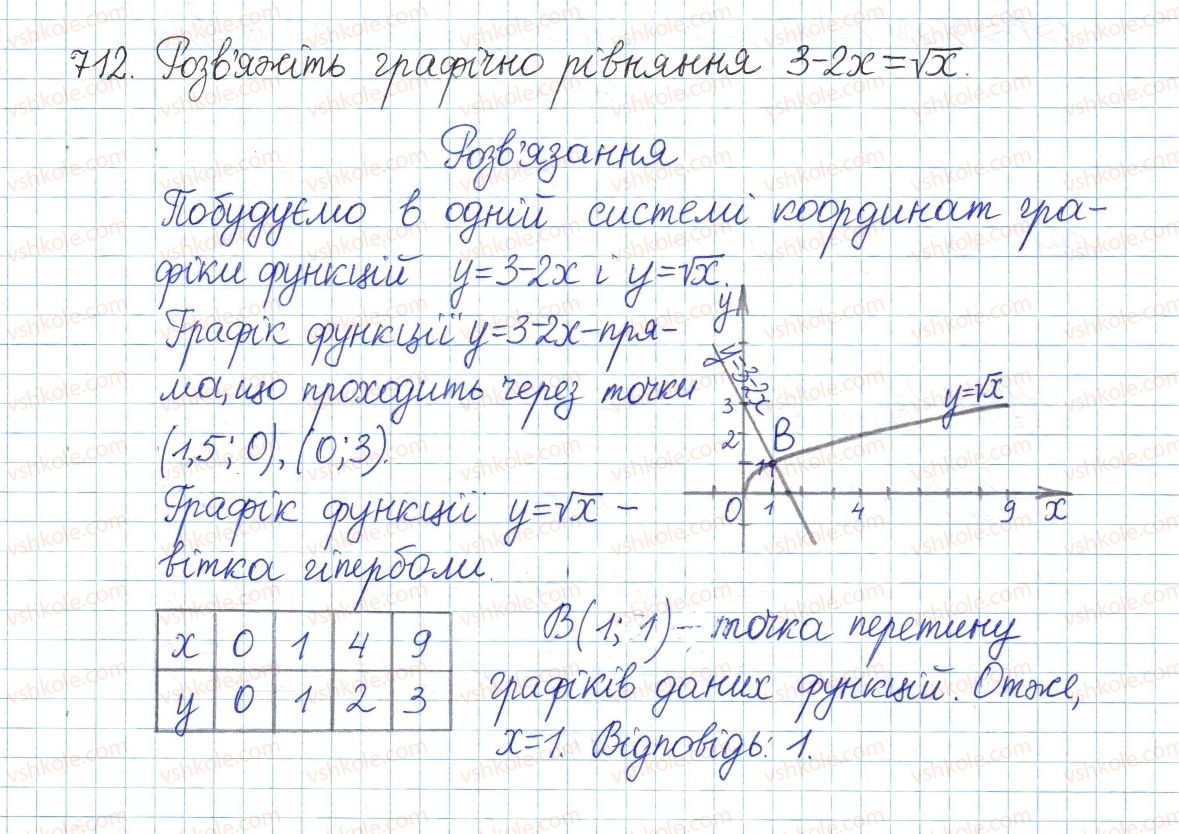 712. Розв'яжіть графічно рівняння 3-2x=√x.
Розв'язання
Побудуємо в одній системі координат гра-
фіки функцій y=3-2x і y=√x.
Графік функції y=3-2x-пря-
ма, що проходить через точки
(1,5; 0), (0; 3).
Графік функції y=√x –
вітка гіперболи.
y
y=3-2x
y=√x
3
2
B
1
0 1 4 9 x
x 0 1 4 9
y 0 1 2 3
B(1; 1) – точка перетину
графіків даних функцій. Отже,
x=1. Відповідь: 1.
vshkole.com